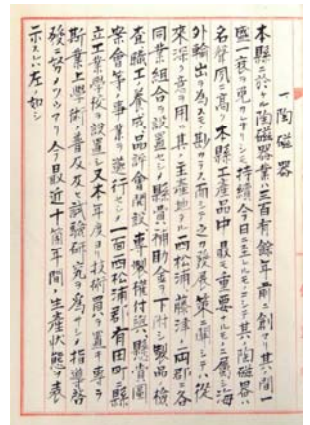 一陶磁器
本縣ニ於ケル陶磁器業ハ三百有餘年前ニ創マリ其ノ間一
國一衰ヲ免カレサリシモ持續シテ今日ニ至レルモノニシテ其ノ陶磁器ハ
名聲夙ニ高ク本縣工產品中最モ重要ナルモノニ屬シ海
外輸出ノ為メモ尠カラス而シテ之カ發展ノ策ニ關シテハ從
來深ク意ヲ用ヒ其ノ主產地タル西松浦藤津ノ兩郡ニ各
同業組合ヲ設置セシメ縣費補助金ヲ下附シ製品檢
查職工ノ養成品評會開設東ノ製權付與縣賞圖
案會等ノ事業ヲ遂行セシメ一面西松浦郡有田町ニ縣
立工業學校ヲ設置シ又本年度ヨリ技術員ヲ置キ專ラ
斯業上學術ノ普及及試驗研究ヲ為サシメ指導啓
發ニ努メツツアリ今最近十箇年間ノ生產狀態ヲ表
示スレハ左ノ如シ